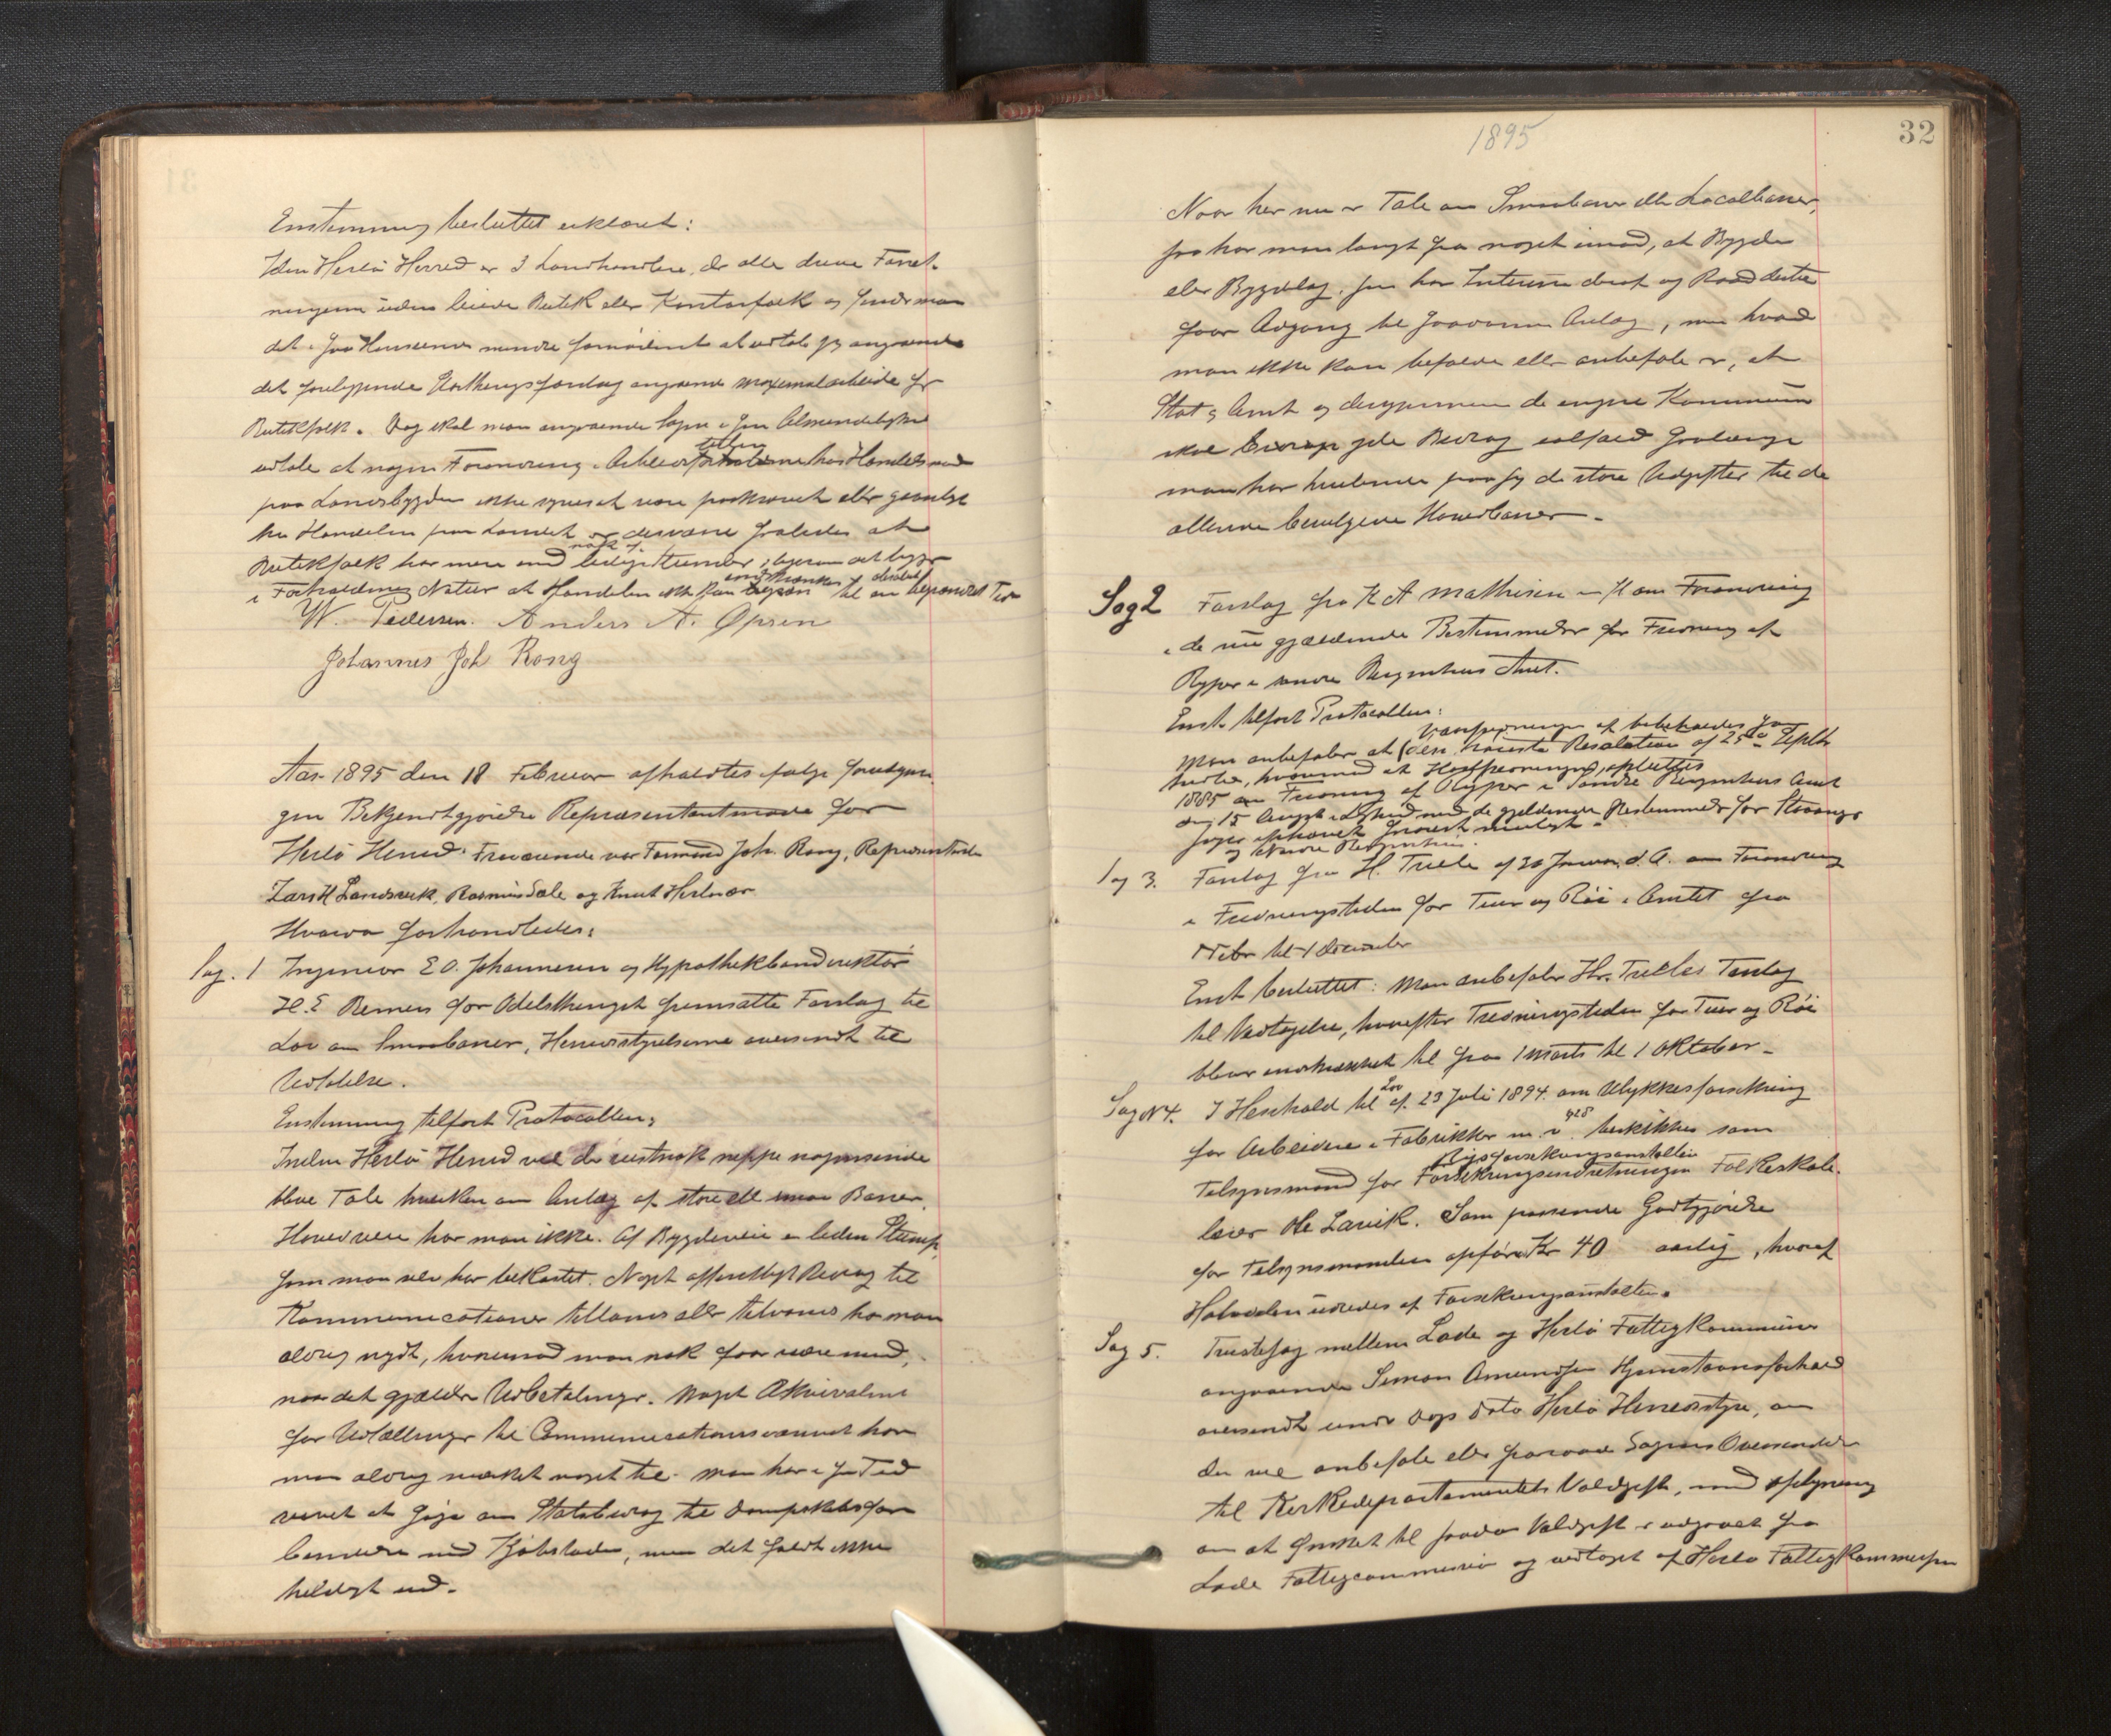 Enstemmig besluttet erklæret:
I den Herlö Herred er 3 Landhandlere, der alle drive Forret-
ningerne uden leiede Butik eller Kontorfolk og finder man
det i saa Henseende mindre fornödent at udtale sig angaaende
det foreliggende Storthingsforslag angaaende maximalarbeide for
Butikfolk. Dog skal man angaaende Sagen i sin Almindelighed
udtale at nogen Forandring i Arbeidstiden hos Handelsmænd
paa Landsbygden ikke synes at være paakrævet eller gavnligt
for Handelen paa Landet og desværre saaledes at
Butikfolk har mere end nok af ledige Stunder, ligesom det ligger
i Forholdenes Natur at Handelen ikke kan indskrænkes til en begrændset Tid
W. Pedersen. Anders A. Opsen
Johannes Joh Rong
Aar 1895 den 18 Februar afholdtes ifølge foregaaen-
gen Bekjendtgjörelse Repræsentantmøde for
Herlö Herred. Fraværende var Formand Joh. Rong, Repræsentanterne
Lars H Landsvik, Rasmus Sæle og Knut Herlevær
Hvorda forhandledes:
Sag. 1 Ingeniør E O. Johannesen og Hypothekbankdirektör
H. E Berners for Odelsthinget fremsatte Forslag til
Lov om Smaabaner, Herredsstyrelserne oversendt til
Udtalelse.
Enstemmig tilfört Protocollen:
Inden Herlö Herred vil der vistnok neppe nogensinde
blive Tale hverken om Anlæg af store eller smaa Baner.
Hovedveie har man ikke. Af Bygdeveie en liden Stump,
som man selv har bekostet. Noget offentligt Bidrag til
Kommunicationer tillands eller tilvands har man
aldrig nydt, hvorimod man nok faar være med,
naar det gjælder Udbetalinger. Noget Ækvivalent
for Udtællinger til Communicationsvæsenet har
man aldrig mærket noget til. Man har i sin Tid
vævet at söge om Statsbidrag til Dampskibsfor-
bindelse med Kjöbstaden, men det faldt ikke
heldigt ud.
1895
32
Naar her nu er Tale om Smaabaner eller Localbaner,
saa har man langt fra noget imod, at Bygder
eller Bygdelag, som har Interesse deraf og Raad dertil
faar Adgang til saadanne Anlæg, men hvad
man ikke kan befatte eller anbefale er, at
Stat, Amt og desuden de enkelte Kommuner
skal yde Bidrag ialfald saalænge
man har hvilende paa sig de store Udgifter til de
allerede bevilgede Hovedbaner.
Sag 2 Forslag fra K A Mathisen m fl om Forandring
i de nu gjældende Bestemmelser for Fredning af
Ryper i söndre Bergenhus Amt.
Enst. tilfört Protocollen:
Vaarfredningen af bibeholdes som
Man anbefaler at den höieste Resolution af 25de Septbr
hvormed at Höstfredningen, ophæves
1885 om Fredning af Ryper i Söndre Bergenhus Amt
15 August i Lighed med de gjældende Bestemmelser for Stavanger
og Nordre Bergenhus.
Sag 3. Forslag fra H. Trelle af 20 Januar d. A. om Forandring
i Fredningstiden for Tiur og Röi i Amtet fra
til 1 December
Enst besluttet: Man anbefaler Hr. Trelles Forslag
til Vedtagelse, hvorefter Fredningstiden for Tiur og Röi
bliver indskrænket til fra 1 Marts til 1 Oktober.
Sag N4. I Henhold til Lov af 23 Juli 1894 om Ulykkesforsikring
for Arbeidere i Fabrikker m. v. § 28 beskikkes som
Tilsynsmand for Rigsforsikringsanstalten Forsikringsindretningen Folkeskole-
lærer Ole Larvik. Som passende Godtgjörelse
for Tilsynsmanden opföres Kr 40 aarlig, hvoraf
Halvdelen udredes af Forsikringsanstalten.
Sag 5. Tvistesag mellem Lade og Herlö Fattigkommune
angaaende Simon Amundsen Hjemstavnsforhold
oversendt under Dags Dato Herlö Herredsstyre, om
der vil anbefale eller fraraade Sagens Oversendelse
til Kirkedepartementets Voldgift, med Oplysning
om at Ønsket til saadan Voldgift er udgaaet fra
Lade Fattigcommission og vedtaget af Herlö Fattigkommission